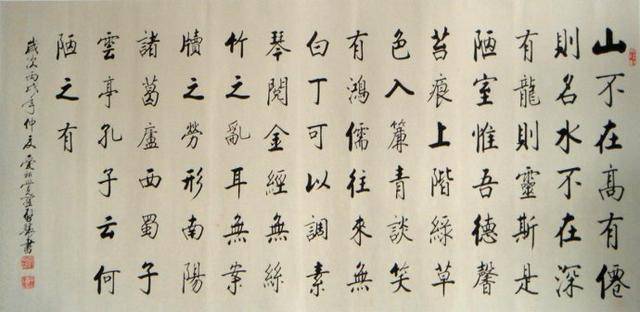 山不在高有僊
則名水不在深
有龍則靈斯是
陋室惟吾德馨
苔痕上階綠草
色入簾青談笑
有鴻儒往來無
白丁可以調素
琴閱金經無絲
竹之亂耳無案
牘之勞形南陽
諸葛廬西蜀子
雲亭孔子云何
陋之有
歲次丙戌年仲夏書